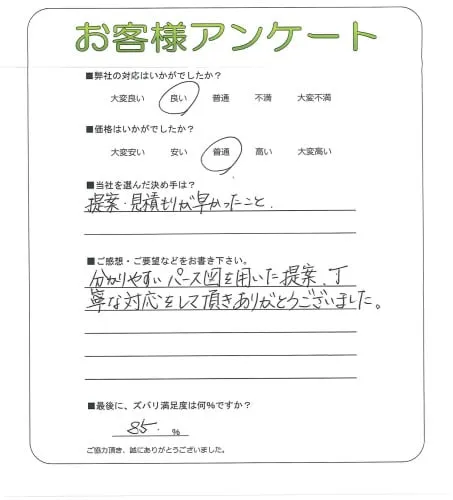 お客様アンケート
■弊社の対応はいかがでしたか?
大変良い 良い 普通 不満 大変不満
■価格はいかがでしたか?
大変安い 安い 普通 高い 大変高い
■当社を選んだ決め手は?
提案・見積もりが早かったこと.
■ご感想・ご要望などをお書き下さい。
分かりやすいパース図を用いた提案、丁
寧な対応をして頂きありがとうございました。
■最後に、ズバリ満足度は何%ですか?
85. %
ご協力頂き、誠にありがとうございました。